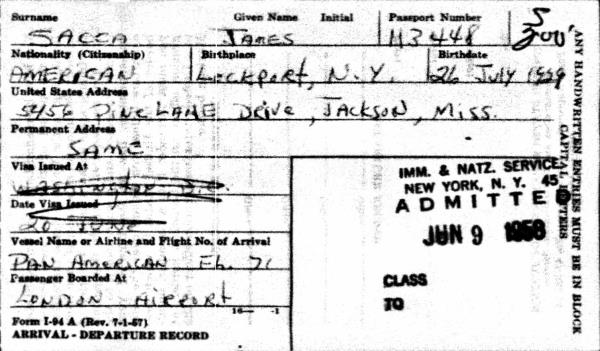 Surname Given Name Initial Passport Number
SACCA JAMES H3448
Nationality (Citizenship) Birthplace Birthdate
AMERICAN Lockport, N.Y. 26 July 1929
United States Address
5456 PINE LANE DRIVE, JACKSON, MISS.
Permanent Address
SAME
Visa Issued At
WASHINGTON, D.C.
Date Visa Issued
20 JUNE
Vessel Name or Airline and Flight No. of Arrival
PAN AMERICAN FL. 71
Passenger Boarded At
LONDON AIRPORT
16— -1
Form I-94 A (Rev. 7-1-57)
ARRIVAL - DEPARTURE RECORD
IMM. & NATZ. SERVICE
NEW YORK, N. Y. 45
ADMITTED
JUN 9 1958
CLASS
TO
ANY HANDWRITTEN ENTRIES MUST BE IN BLOCK
CAPITAL LETTERS